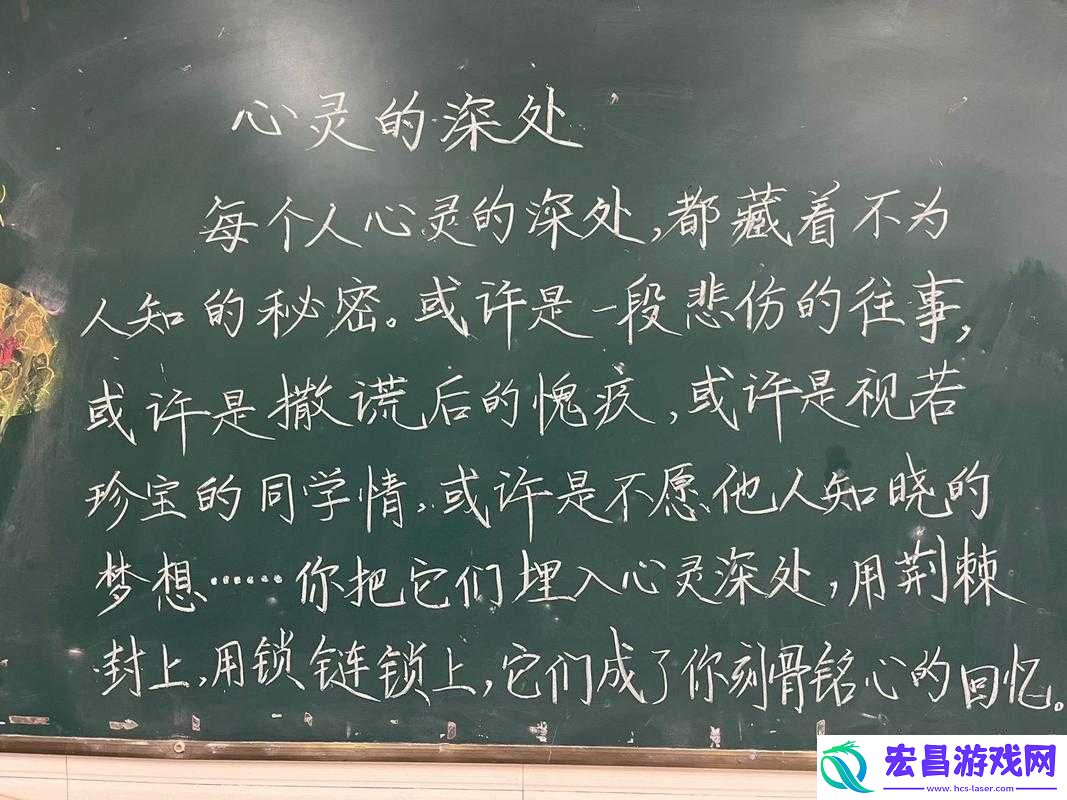 心灵的深处
每个人心灵的深处,都藏着不为
人知的秘密。或许是一段悲伤的往事,
或许是撒谎后的愧疚,或许是视若
珍宝的同学情,或许是不愿他人知晓的
梦想……你把它们埋入心灵深处,用荆棘
封上,用锁链锁上,它们成了你刻骨铭心的回忆。
宏昌游戏网
www.hcs-laser.com